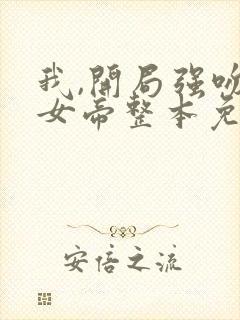 我,開局强吻
女帝整本免
安倍之流